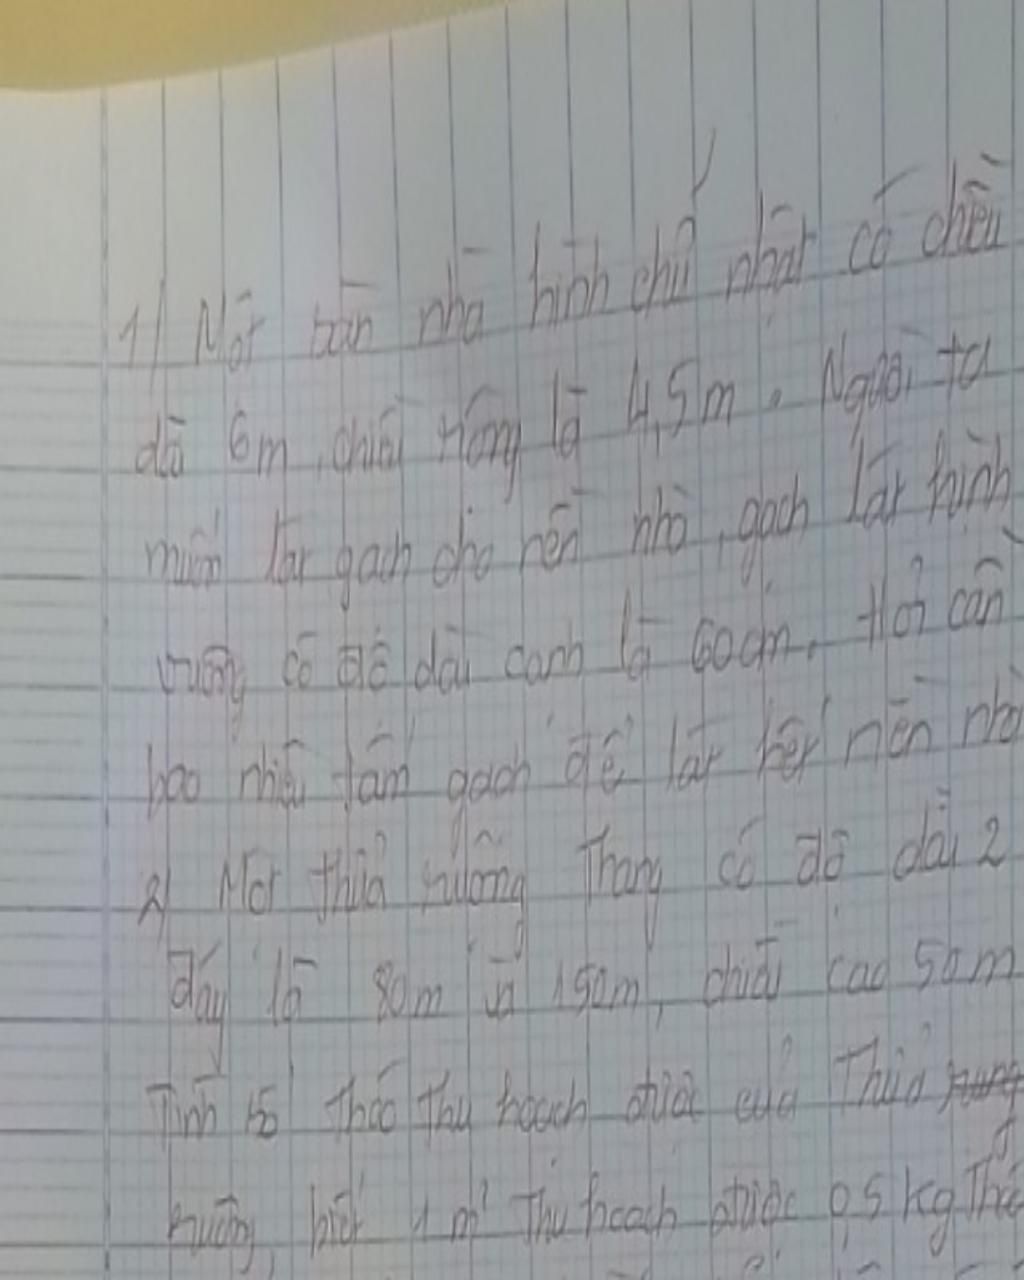 1) Một căn nhà hình chữ nhật có chiều
dài 6m, chiều rộng là 4,5m. Người ta
muốn lát gạch cho nền nhà, gạch lát hình
vuông có độ dài cạnh là 60cm. Hỏi cần
bao nhiêu tấm gạch để lát hết nền nhà
2) Một thửa ruộng Thang có độ dài 2
đáy là 80m và 150m, chiều cao 50m
Tính số thóc thu hoạch được của Thửa
ruộng, biết 1m² Thu hoạch được 0,5 kg Thóc